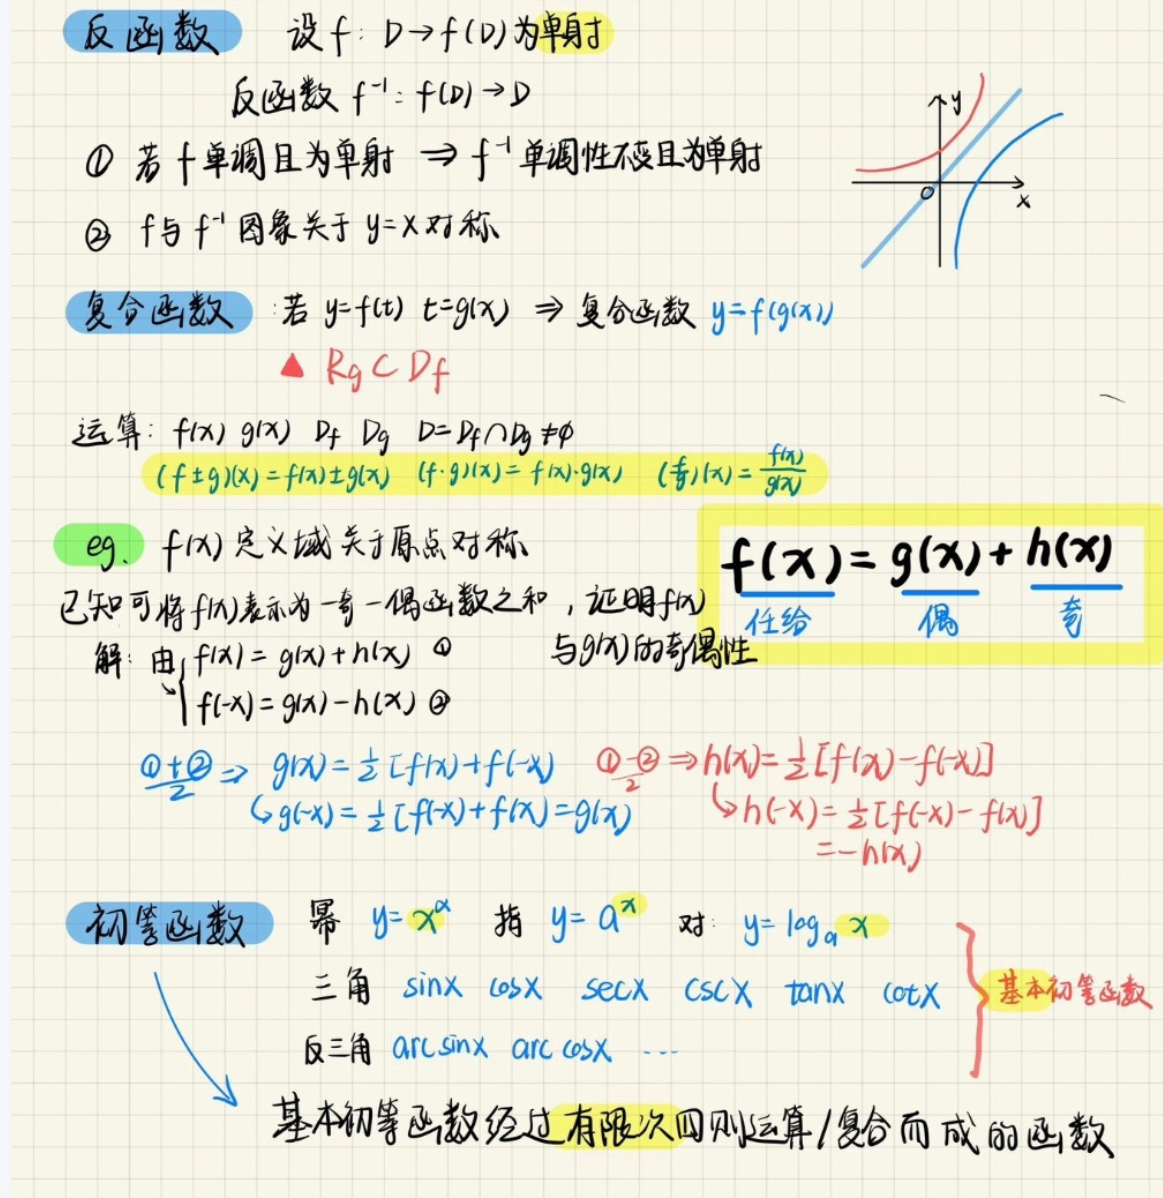 反函数 设f: D→f(D)为单射
反函数 f⁻¹: f(D)→D
① 若f单调且为单射 ⇒ f⁻¹单调性不变且为单射
② f与f⁻¹图象关于y=x对称
y
O
x
复合函数 : 若 y=f(t) t=g(x) ⇒ 复合函数 y=f(g(x))
▲ Rg⊂Df
运算: f(x) g(x) Df Dg D=Df∩Dg≠∅
(f±g)(x)=f(x)±g(x) (f·g)(x)=f(x)·g(x) (f/g)(x)=f(x)/g(x)
eg. f(x)定义域关于原点对称
已知可将f(x)表示为一奇一偶函数之和，证明f(x)
与g(x)的奇偶性
f(x)=g(x)+h(x)
任给 偶 奇
解: 由 f(x)=g(x)+h(x) ①
f(-x)=g(x)-h(x) ②
(①+②)/2 ⇒ g(x)=1/2[f(x)+f(-x)
↳g(-x)=1/2[f(-x)+f(x)=g(x)
(①-②)/2 ⇒ h(x)=1/2[f(x)-f(-x)]
↳h(-x)=1/2[f(-x)-f(x)]
=-h(x)
初等函数 幂 y=x^α 指 y=a^x 对: y=logₐx
三角 sinx cosx secx cscx tanx cotx
反三角 arcsinx arccosx ...
基本初等函数
基本初等函数经过有限次四则运算/复合而成的函数